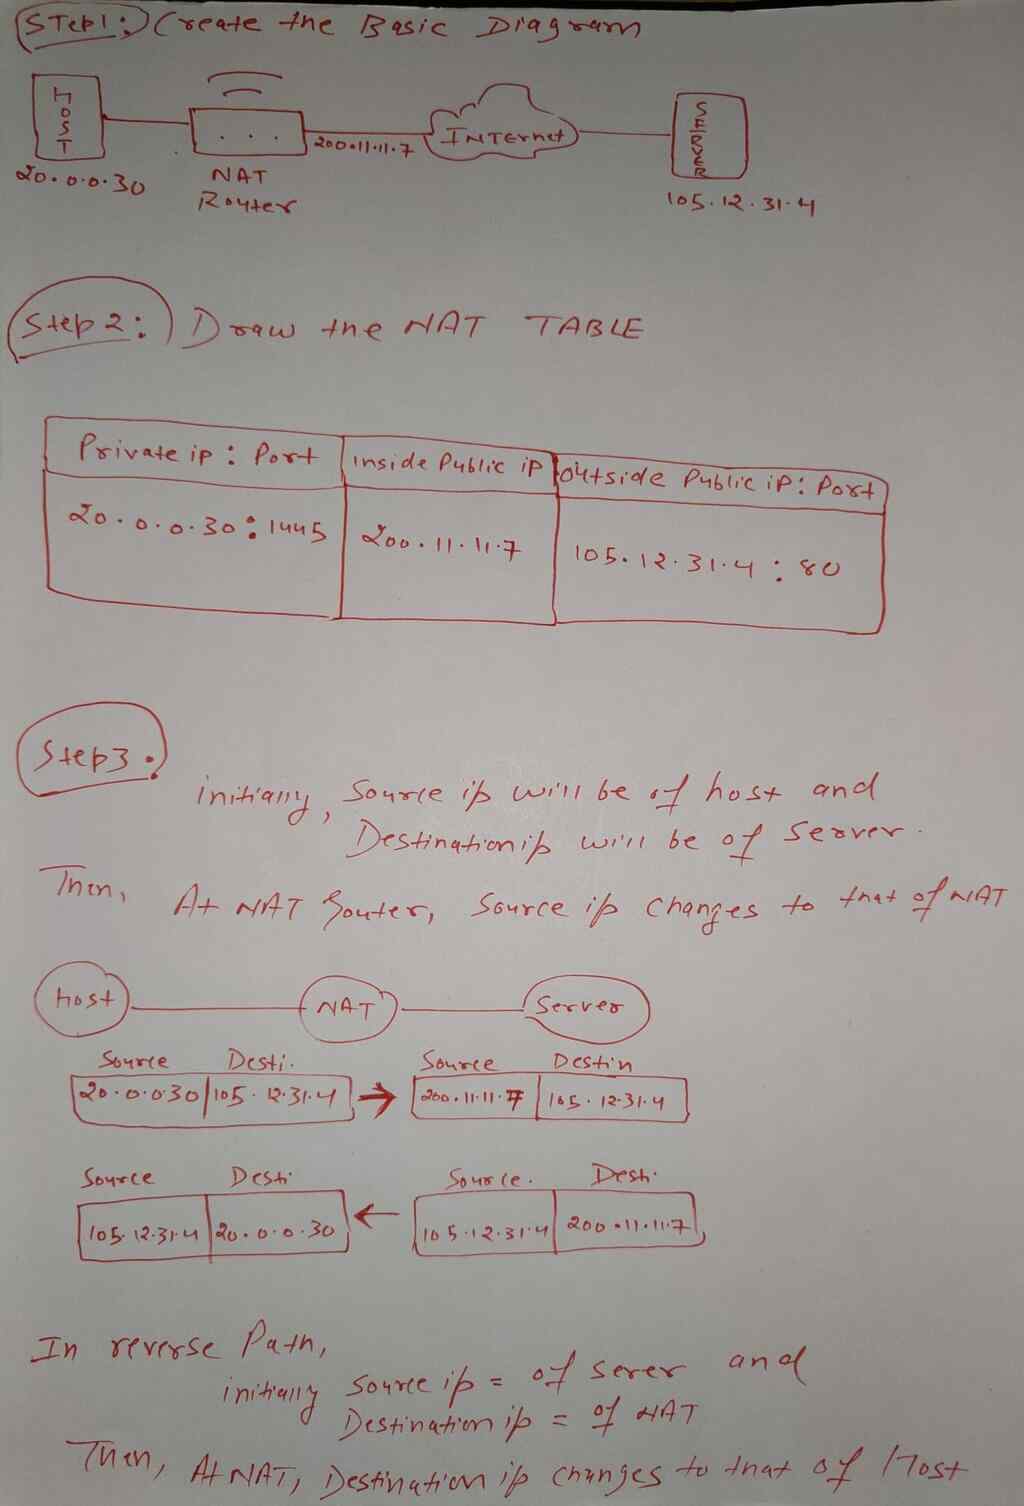 STEP1: Create the Basic Diagram
HOST
INTERNET
SERVER
200.11.11.7
20.0.0.30
NAT
Router
105.12.31.4
Step 2: Draw the NAT TABLE
Private ip : Port
inside Public ip
outside Public iP: Port
20.0.0.30:1445
200.11.11.7
105.12.31.4:80
Step3.
initially, Source ip will be of host and
Destination ip will be of Server.
Then, At NAT Router, Source ip changes to that of NAT
host
NAT
Server
Source Desti.
Source Destin
20.0.0.30 105.12.31.4
200.11.11.7 105.12.31.4
Source Desti
Source. Desti.
105.12.31.4 20.0.0.30
105.12.31.4 200.11.11.7
In reverse Path,
initially Source ip = of serer and
Destination ip = of NAT
Then, At NAT, Destination ip changes to that of Host